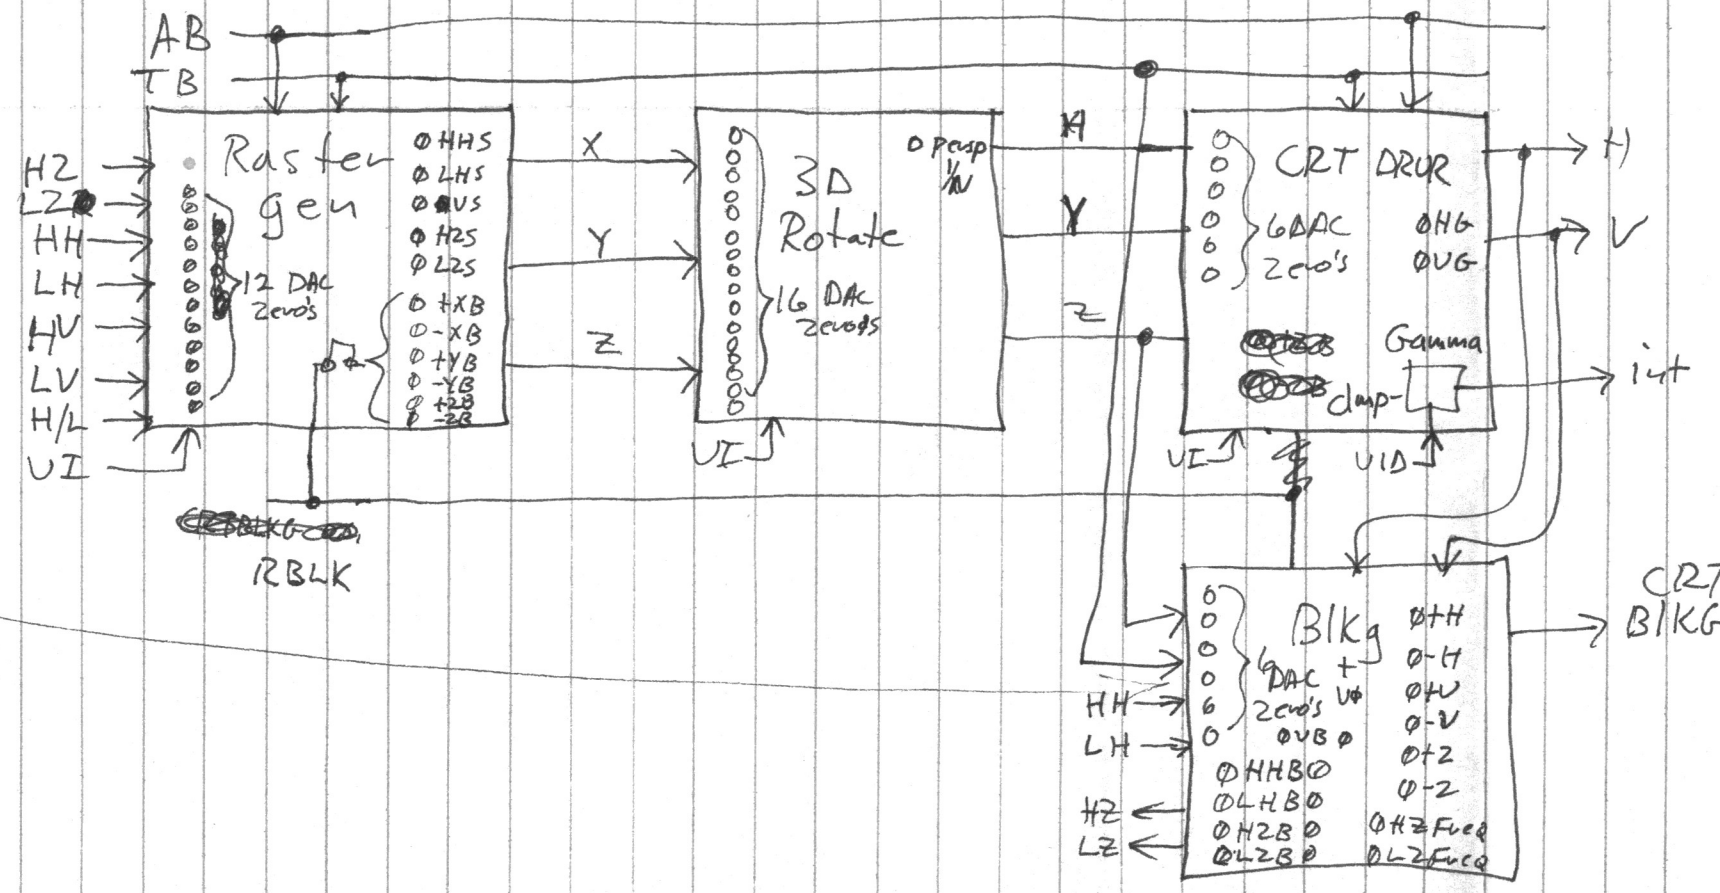 AB
TB
HZ
LZ
HH
LH
HV
LV
H/L
VI
Raster
gen
12 DAC
Zero's
ØHHS
ØLHS
ØVS
ØHZS
ØLZS
Ø+XB
Ø-XB
Ø+YB
Ø-YB
Ø+ZB
Ø-ZB
RBLK
X
Y
Z
3D
Rotate
16 DAC
Zero's
O Persp
1/N
VI
H
Y
Z
CRT DRVR
6 DAC
Zero's
ØHG
ØVG
Gamma
VI
VID
H
V
int
Blkg
DAC +
Zero's VØ
ØVBØ
ØHHBØ
ØLHBØ
ØHZBØ
ØLZBØ
Ø+H
Ø-H
Ø+V
Ø-V
Ø+Z
Ø-Z
ØHZFreq
ØLZFreq
HH
LH
HZ
LZ
CRT
BlKG